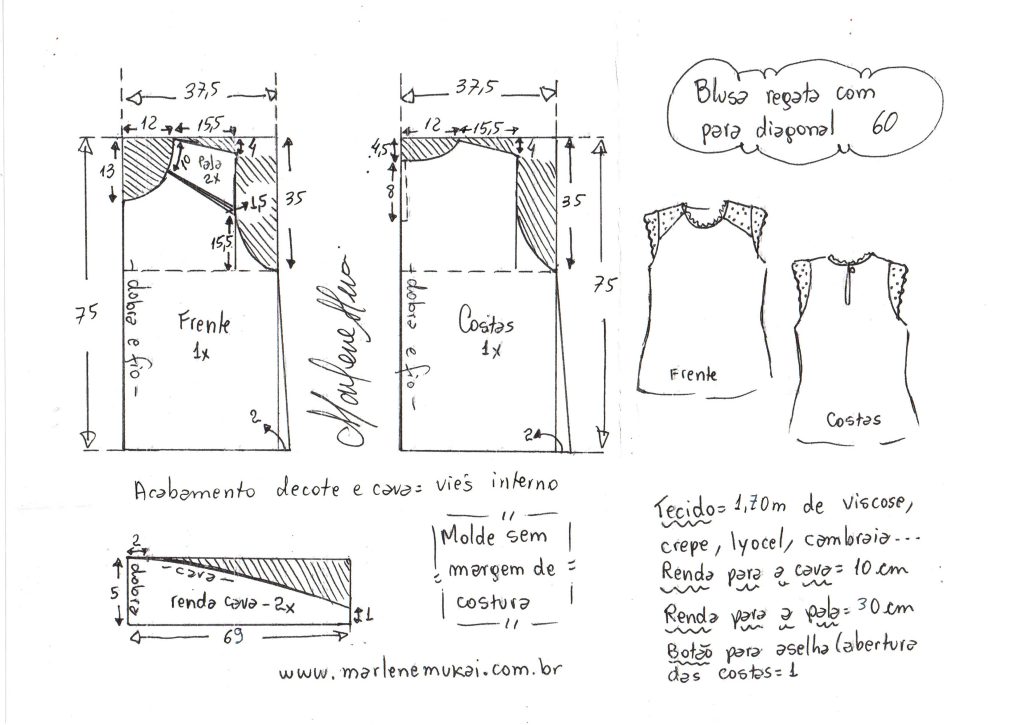 Blusa regata com
para diagonal 60
37,5
12
15,5
4
13
10
Pala
2x
1,5
15,5
35
75
dobra e fio
Frente
1x
2
Marlene Mukai
37,5
12
15,5
4,5
4
8
35
75
dobra e fio
Costas
1x
2
Frente
Costas
Acabamento decote e cava = viés interno
2
5
dobra
cava
renda cava - 2x
1
69
Molde sem
margem de
costura
www.marlenemukai.com.br
Tecido = 1,70m de viscose,
crepe, lyocel, cambraia...
Renda para a cava = 10 cm
Renda para a pala = 30 cm
Botão para aselha (abertura
das costas = 1